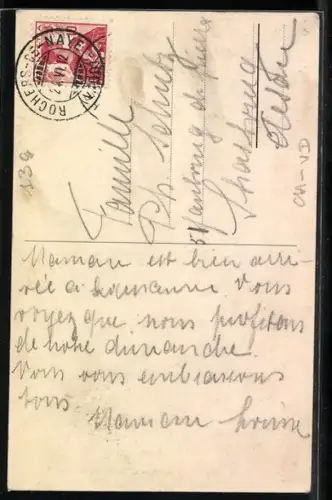 ROCHERS-DE-NAYE
VI. 12
Famille
Ph. Schutz
Faubourg de Pierre
Strasbourg
CH-VD
Maman est bien arri-
vée à Lausanne Vous
voyez que nous profitons
de notre dimanche.
Vous vous embrassons
tous
Maman Louise